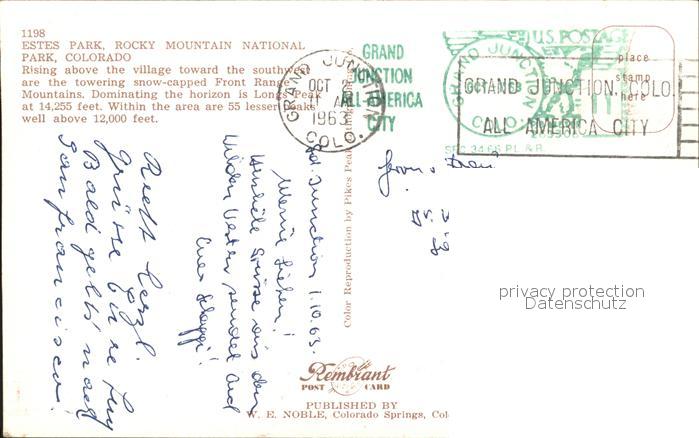 1198
ESTES PARK, ROCKY MOUNTAIN NATIONAL
PARK, COLORADO
Rising above the village toward the southwest
are the towering snow-capped Front Range
Mountains. Dominating the horizon is Longs Peak
at 14,255 feet. Within the area are 55 lesser peaks
well above 12,000 feet.
GRAND JUNCTION
OCT
AM
1963
COLO.
GRAND
JUNCTION
ALL-AMERICA
CITY
U.S. POSTAGE
GRAND JUNCTION
COLO.
11
SEC. 34.66 P.L. & R.
place
stamp
here
GRAND JUNCTION, COLO.
ALL AMERICA CITY
Gd. Junction 1.10.63.
Meine Lieben!
Herzliche Grüsse aus dem
Wilden Westen sendet Euch
Euer
Recht herzl.
Grüsse
Bald geht's nach
San Francisco!
Color Reproduction by Pikes Peak
Rembrant
POST CARD
PUBLISHED BY
W. E. NOBLE, Colorado Springs, Col
privacy protection
Datenschutz